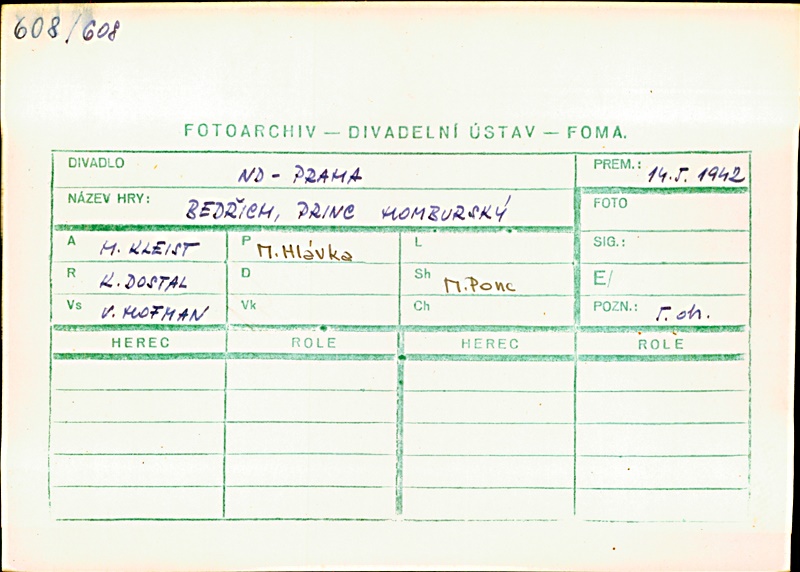 608/608
FOTOARCHIV — DIVADELNÍ ÚSTAV — FOMA.
DIVADLO ND - PRAHA PREM.: 14.5. 1942
NÁZEV HRY: BEDŘICH, PRINC HOMBURSKÝ FOTO
A H. KLEIST P M. Hlávka L SIG.:
R K. DOSTAL D Sh M. Ponc E/
Vs V. HOFMAN Vk Ch POZN.:
HEREC ROLE HEREC ROLE